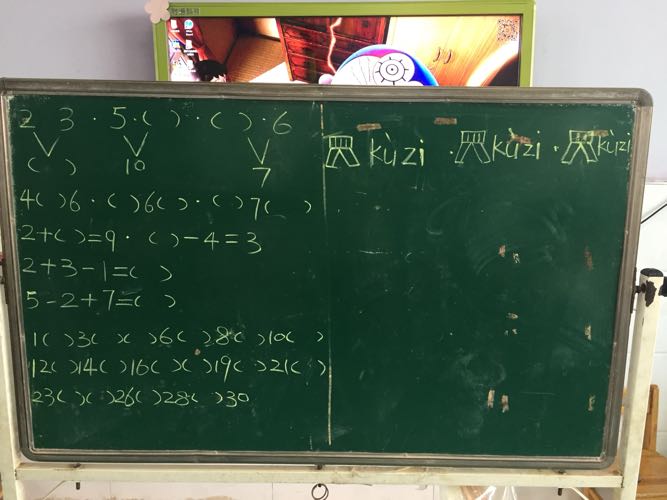 2 3 · 5 · ( ) · ( ) · 6
( ) 10 7
4( )6 · ( )6( ) · ( )7( )
2+( )=9 · ( )-4=3
2+3-1=( )
5-2+7=( )
1( )3( )( )6( )8( )10( )
12( )14( )16( )( )19( )21( )
23( )( )26( )28( )30
kùzi · kùzi · kùzi